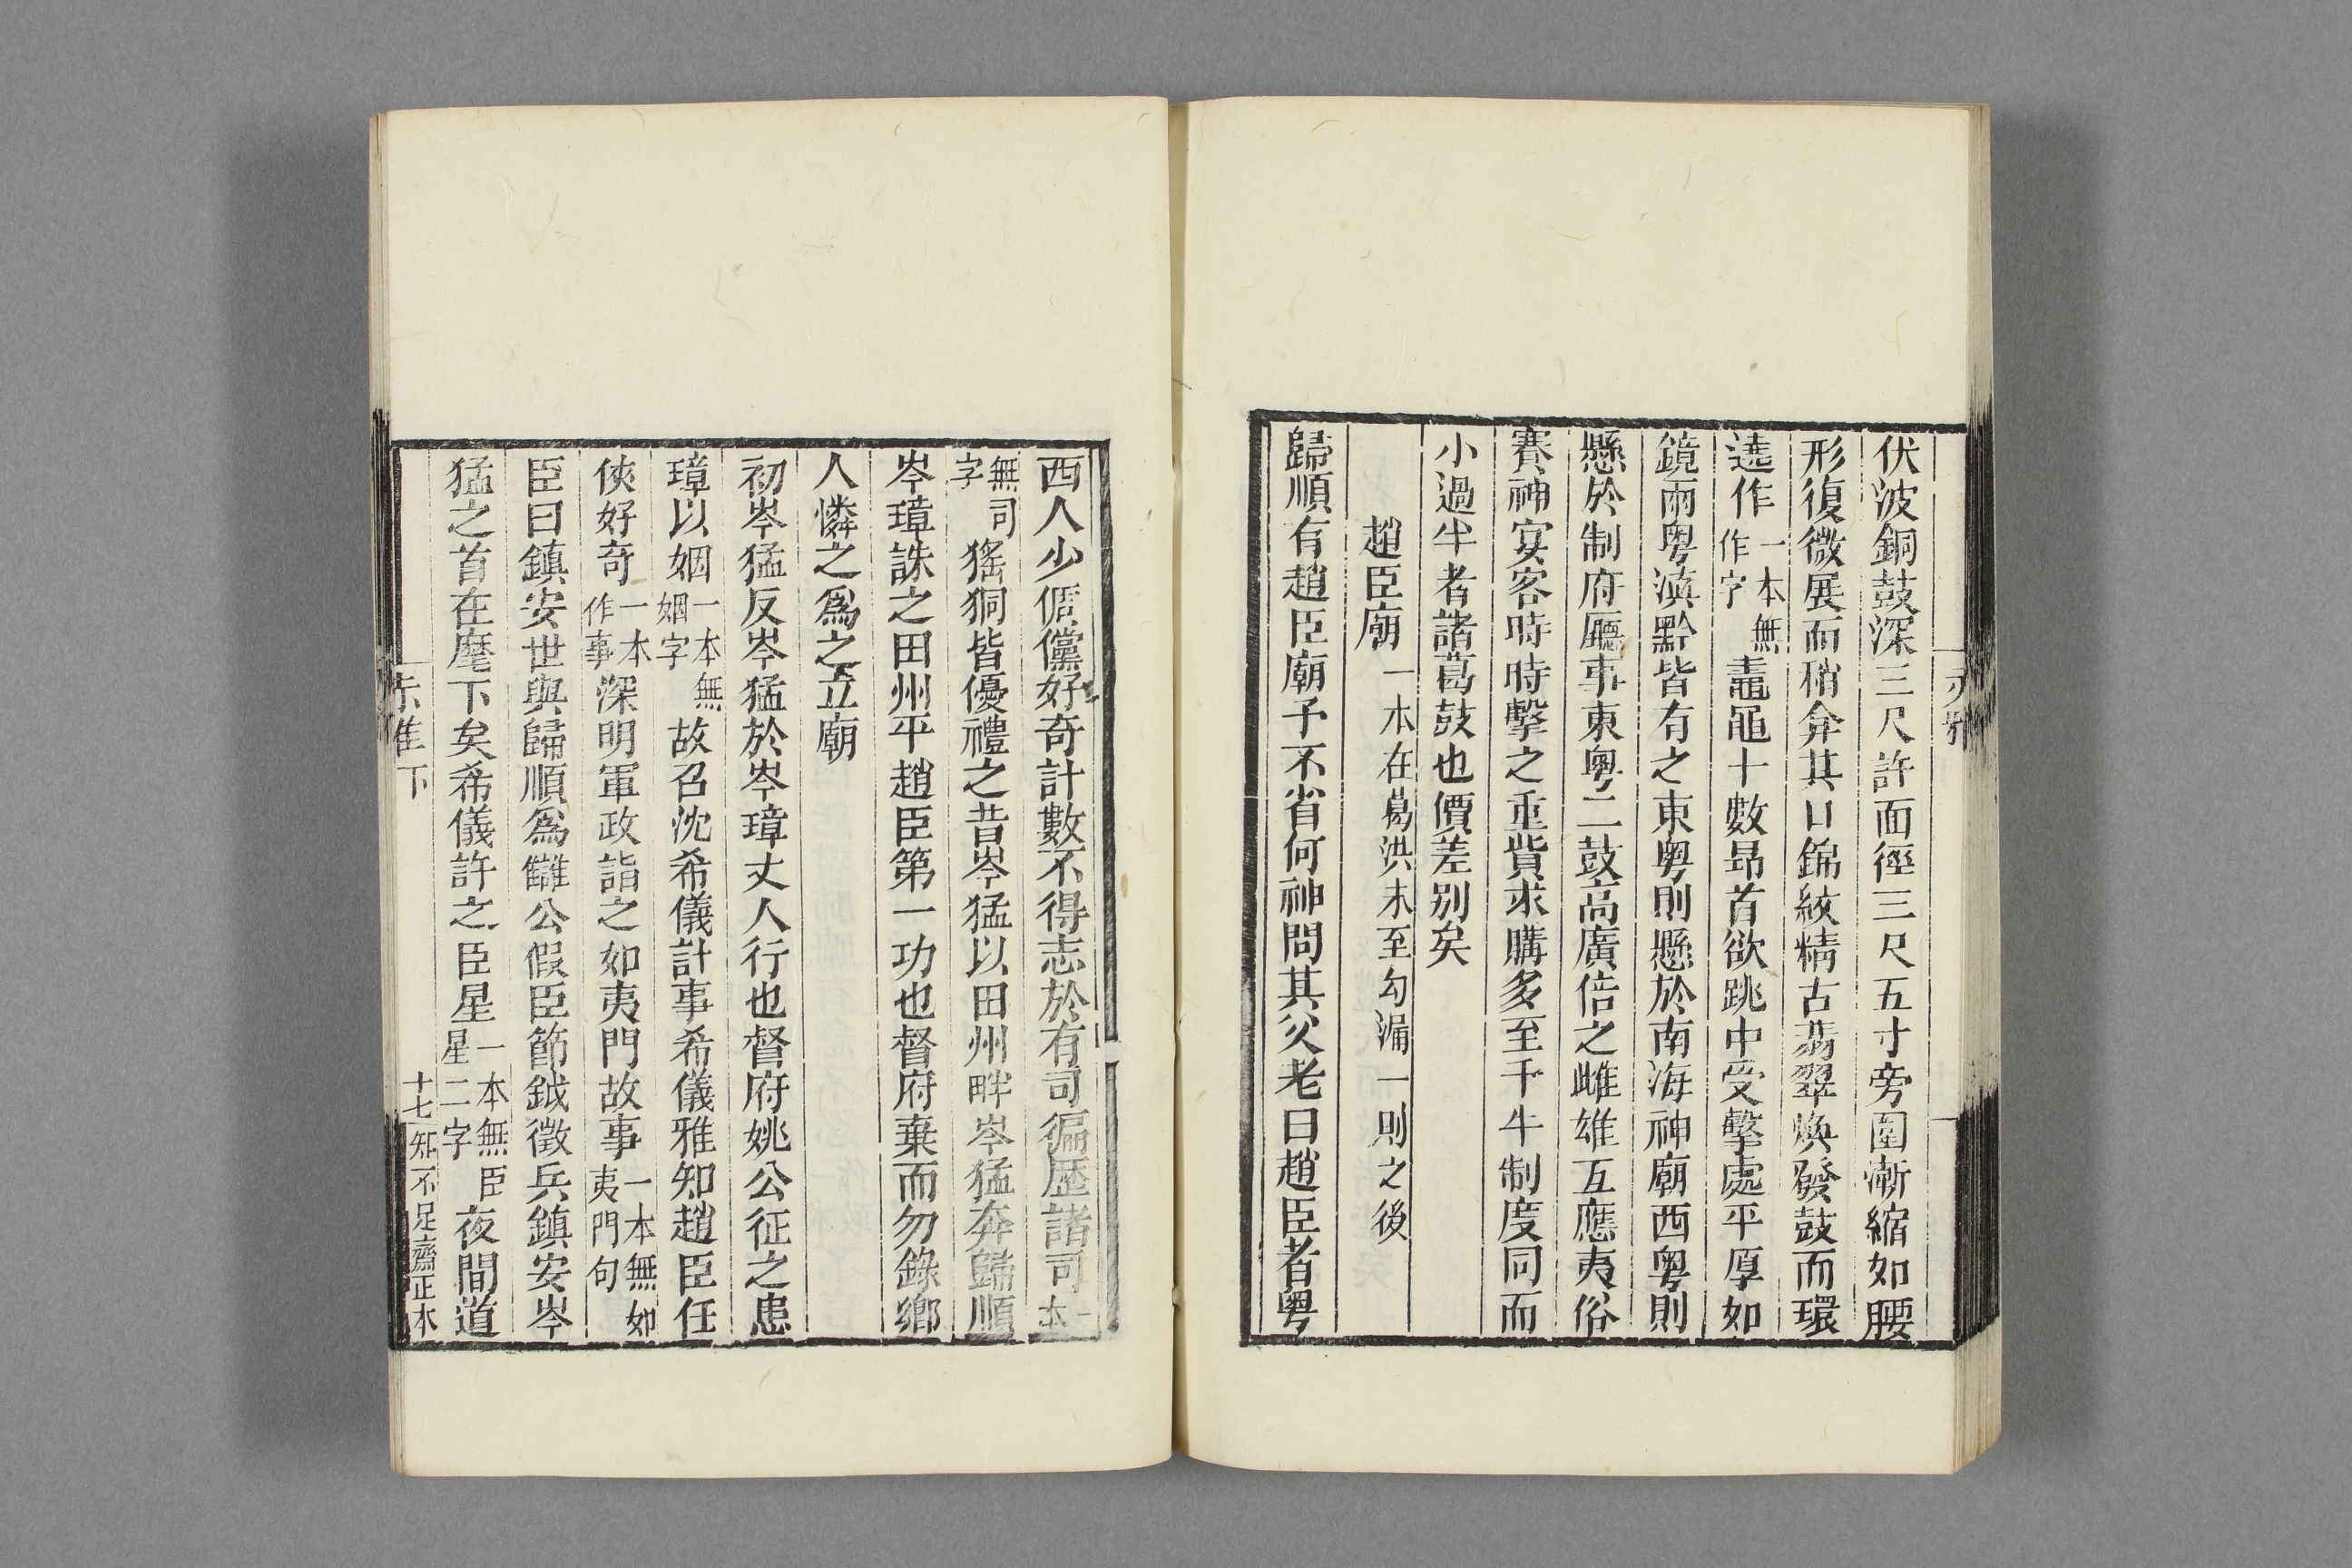 伏波銅鼓深三尺許面徑三尺五寸旁圍漸縮如腰
形復微展而稍弇其口錦紋精古翡翠煥發鼓而環
遶作一本無作字鼃黽十數昂首欲跳中受擊處平厚如
鏡兩粵滇黔皆有之東粵則懸於南海神廟西粵則
懸於制府廳事東粵二鼓高廣倍之雌雄互應夷俗
賽神宴客時時擊之重貲求購多至千牛制度同而
小過半者諸葛鼓也價差別矣
趙臣廟一本在葛洪未至勾漏一則之後
歸順有趙臣廟予不省何神問其父老曰趙臣者粵
西人少倜儻好奇計數不得志於有司徧歷諸司一本
無司字猺狪皆優禮之昔岑猛以田州畔岑猛奔歸順
岑璋誅之田州平趙臣第一功也督府棄而勿錄鄉
人憐之爲之立廟
初岑猛反岑猛於岑璋丈人行也督府姚公征之患
璋以姻一本無姻字故召沈希儀計事希儀雅知趙臣任
俠好奇一本作事深明軍政詣之如夷門故事一本無如夷門句
臣曰鎮安世與歸順爲讎公假臣節鉞徵兵鎮安岑
猛之首在麾下矣希儀許之臣星星一本無臣星二字夜間道
下
十七
知不足齋正本